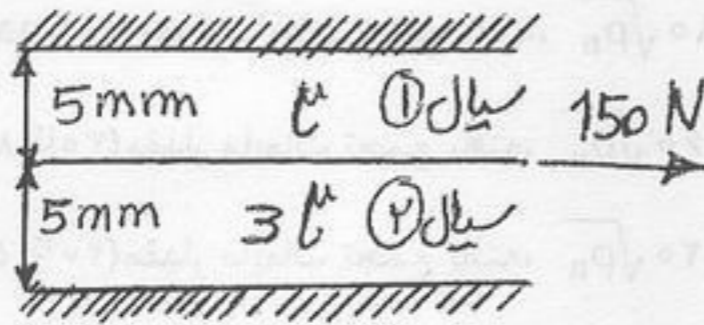 5mm μ سیال ① 150 N
5mm 3μ سیال ②